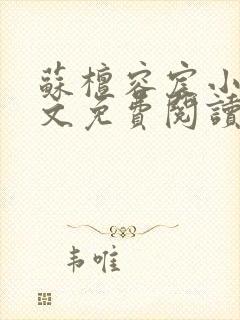 蘇檀容宧小
文免費閱讀
韦唯